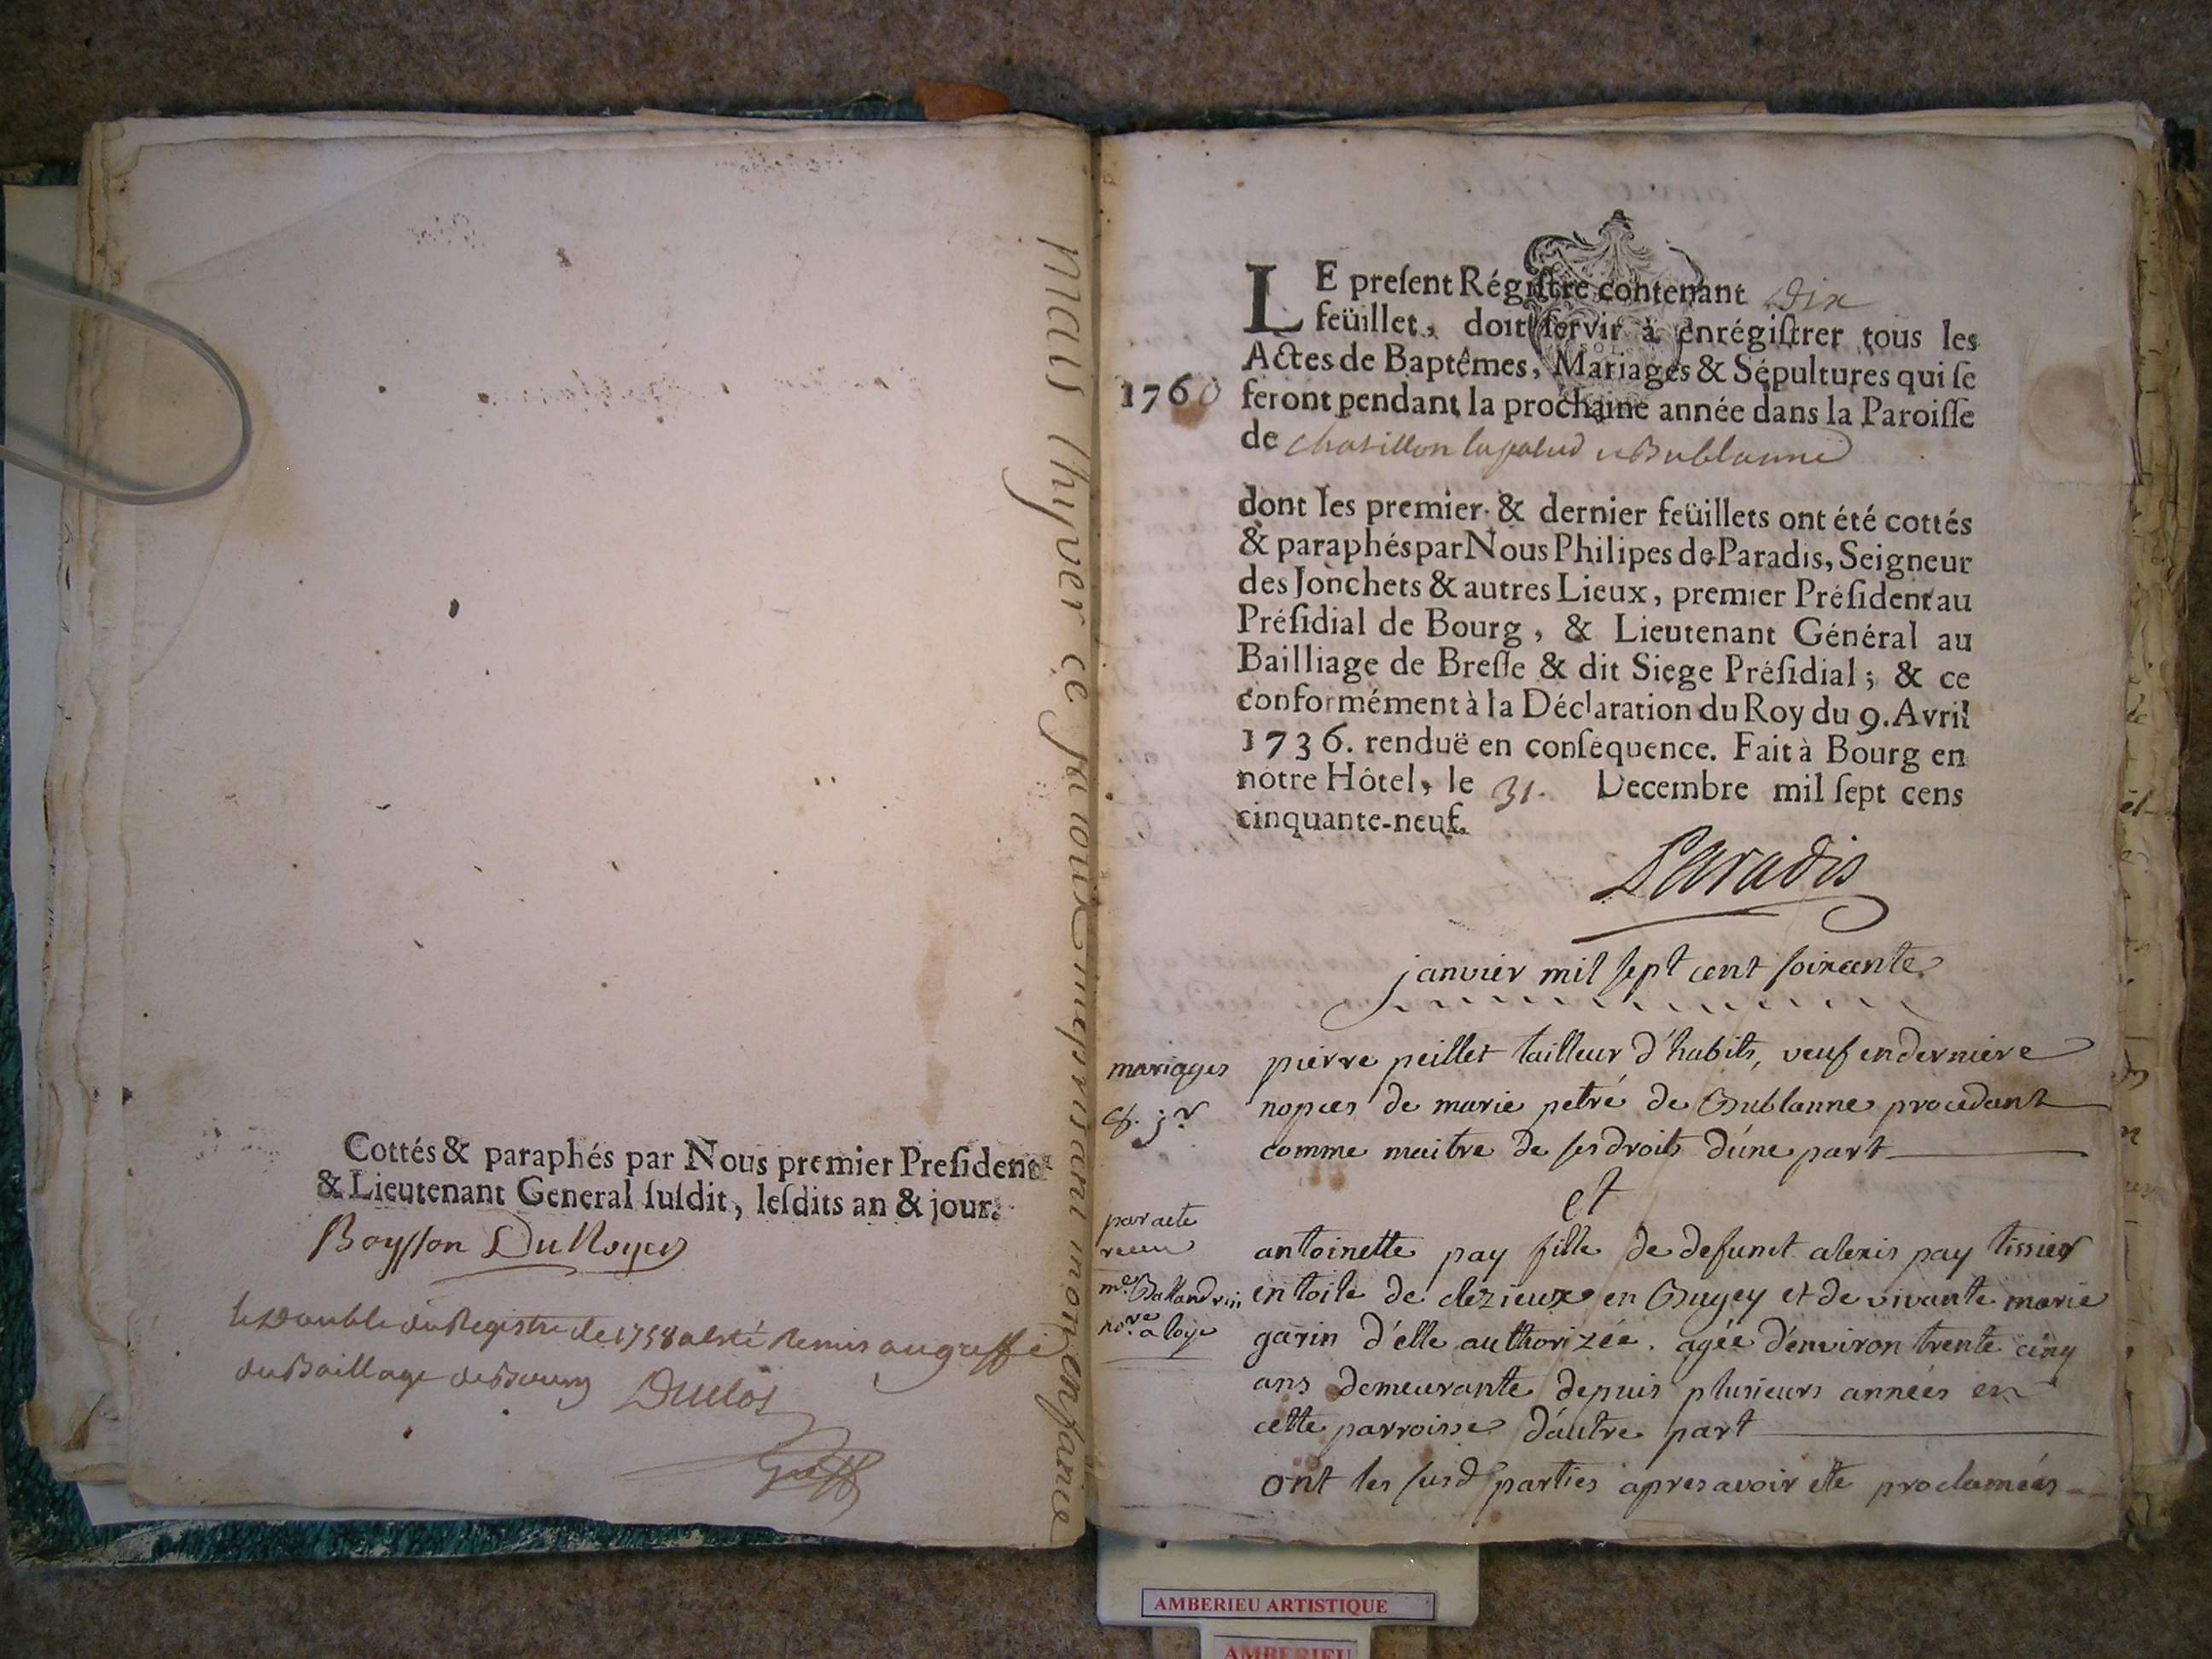 Cottés & paraphés par Nous premier Preſident
& Lieutenant General ſuſdit, leſdits an & jour.
Boysson DuNoyer
le Double du Registre de 1758 a été Remis au greffe
du Baillage de Bourg Duclos
Greff
mais l'hyver ce
me mon enfance
LE preſent Régiſtre contenant Dix
feüillet, doit ſervir à enrégiſtrer tous les
Actes de Baptêmes, Mariages & Sépultures qui ſe
1760 feront pendant la prochaine année dans la Paroiſſe
de chatillon lapalud et Bublanne
dont les premier & dernier feüillets ont été cottés
& paraphés par Nous Philipes de Paradis, Seigneur
des Jonchets & autres Lieux, premier Préſident au
Préſidial de Bourg, & Lieutenant Général au
Bailliage de Breſſe & dit Siege Préſidial; & ce
conformément à la Déclaration du Roy du 9. Avril
1736. renduë en conſéquence. Fait à Bourg en
nôtre Hôtel, le 31. Decembre mil ſept cens
cinquante-neuf.
Paradis
janvier mil sept cent soixante
mariages
8. jr
pierre peillet tailleur d'habits, veuf en derniere
nopces de marie petré de Bublanne procedant
comme maitre de ses droits d'une part
et
par acte
receu
me. Ballandrin
nore a loye
antoinette pay fille de defunct alexis pay tissier
en toile de clezieux en Bugey et de vivante marie
garin d'elle authorizée. agée d'environ trente cinq
ans demeurante depuis plusieurs années en
cette parroisse d'autre part
ont les susd parties apres avoir ete proclamées
AMBERIEU ARTISTIQUE
AMBERIEU